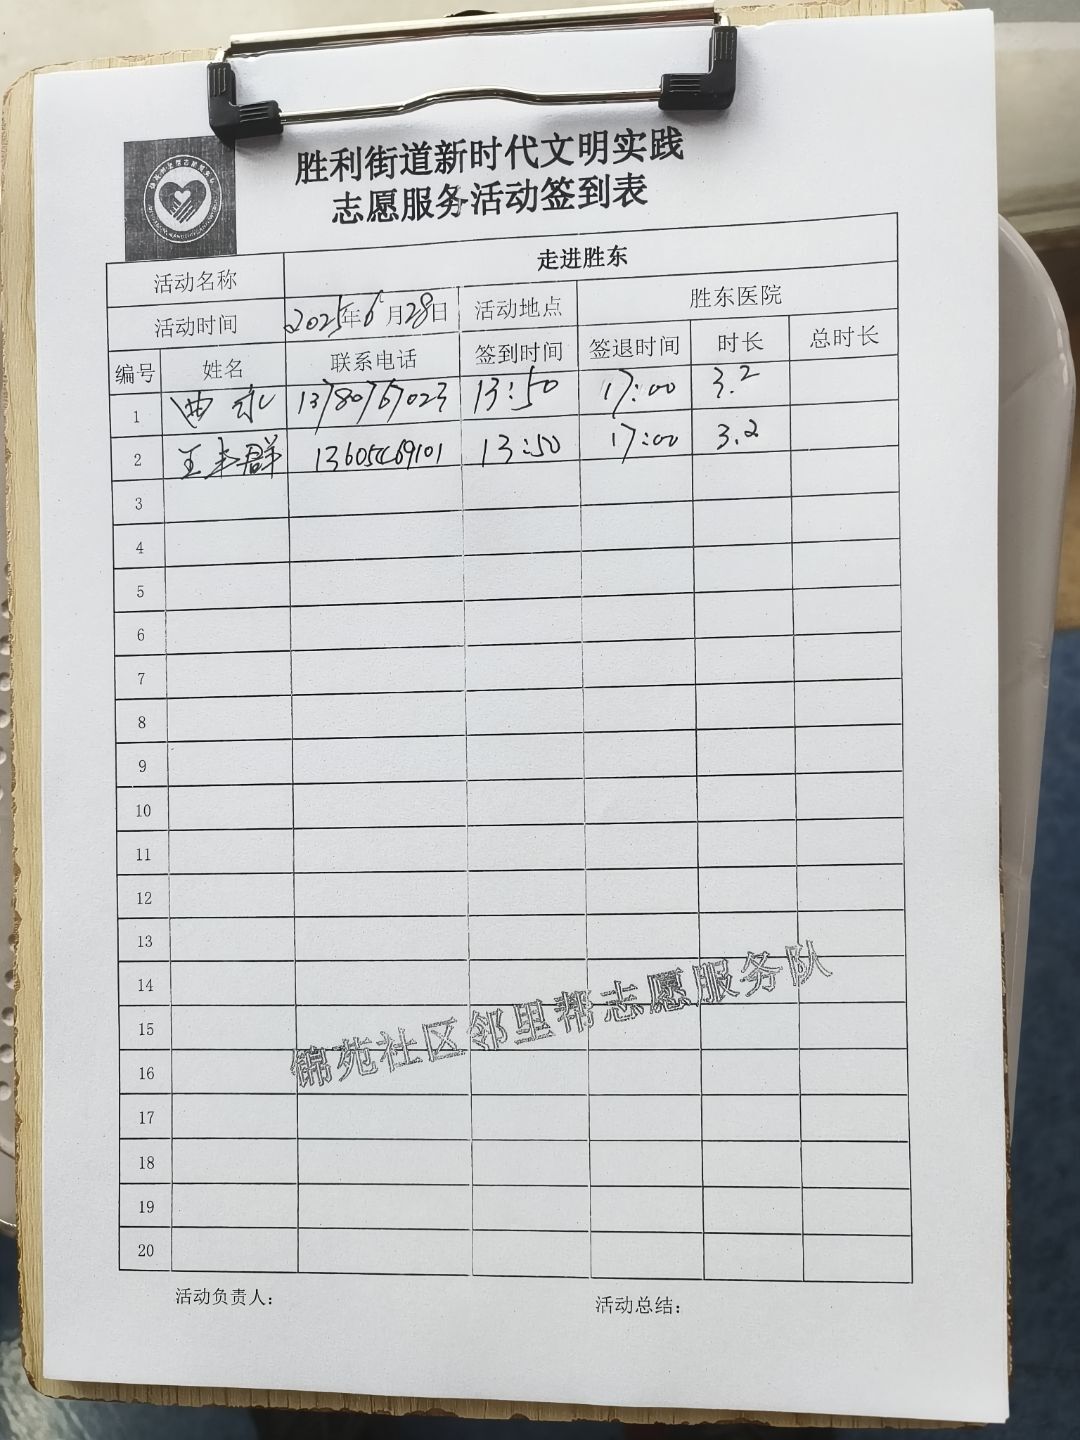 胜利街道新时代文明实践
志愿服务活动签到表
活动名称 走进胜东
活动时间 2025年6月28日 活动地点 胜东医院
编号 姓名 联系电话 签到时间 签退时间 时长 总时长
1 曲永 13780767023 13:50 17:00 3.2
2 王 群 13605469101 13:50 17:00 3.2
3
4
5
6
7
8
9
10
11
12
13
14
15
16
17
18
19
20
锦苑社区邻里帮志愿服务队
活动负责人： 活动总结：